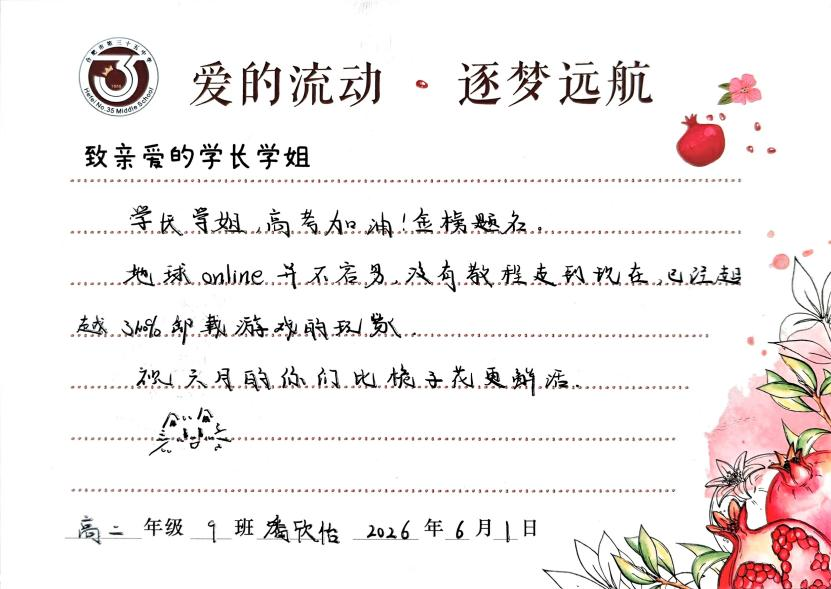 合肥市第三十五中学
Hefei No.35 Middle School
爱的流动·逐梦远航
致亲爱的学长学姐
学长学姐,高考加油!金榜题名。
地球online并不容易,没有教程走到现在,已经超
越 % 卸载游戏的玩家.
祝六月的你们比栀子花更鲜活.
高二年级 9 班 潘欣怡 2026 年 6 月 1 日